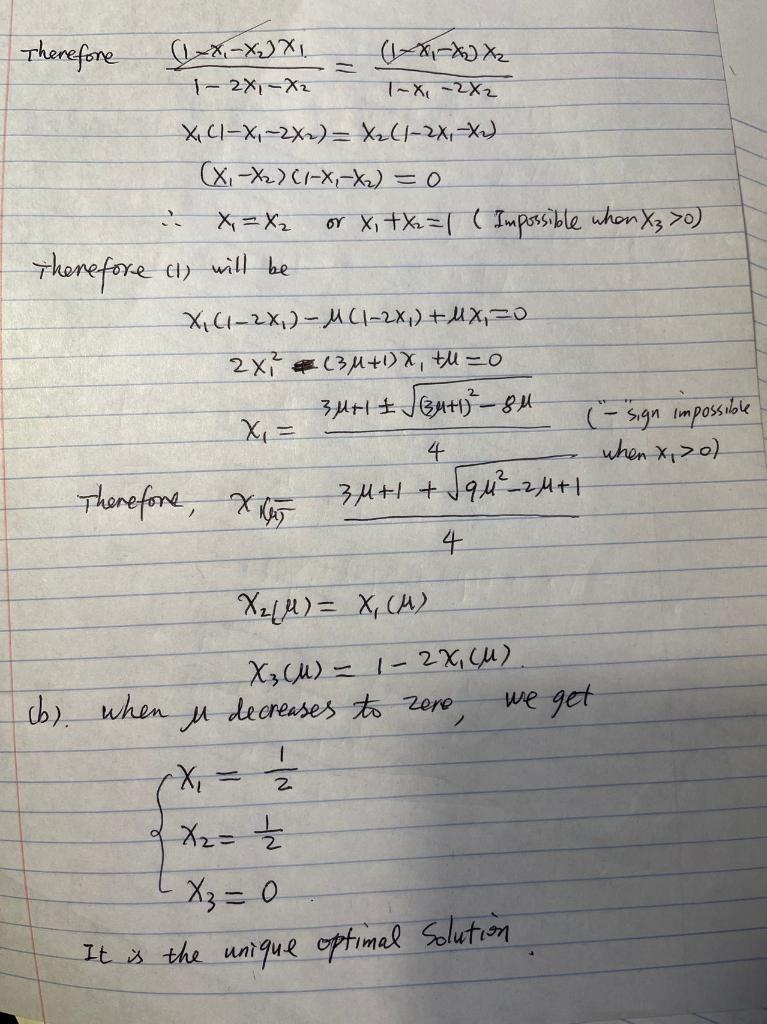 Therefore (1-x₁-x₂)x₁ / (1-2x₁-x₂) = (1-x₁-x₂)x₂ / (1-x₁-2x₂)
x₁(1-x₁-2x₂) = x₂(1-2x₁-x₂)
(x₁-x₂)(1-x₁-x₂) = 0
∴ x₁ = x₂ or x₁+x₂=1 (Impossible when x₃>0)
Therefore (1) will be
x₁(1-2x₁) - μ(1-2x₁) + μx₁ = 0
2x₁² - (3μ+1)x₁ + μ = 0
x₁ = (3μ+1 ± √((3μ+1)² - 8μ)) / 4 ("-" sign impossible
when x₁>0)
Therefore, x₁(μ) = (3μ+1 + √(9μ²-2μ+1)) / 4
x₂(μ) = x₁(μ)
x₃(μ) = 1-2x₁(μ).
(b). when μ decreases to zero, we get
x₁ = 1/2
x₂ = 1/2
x₃ = 0.
It is the unique optimal solution.